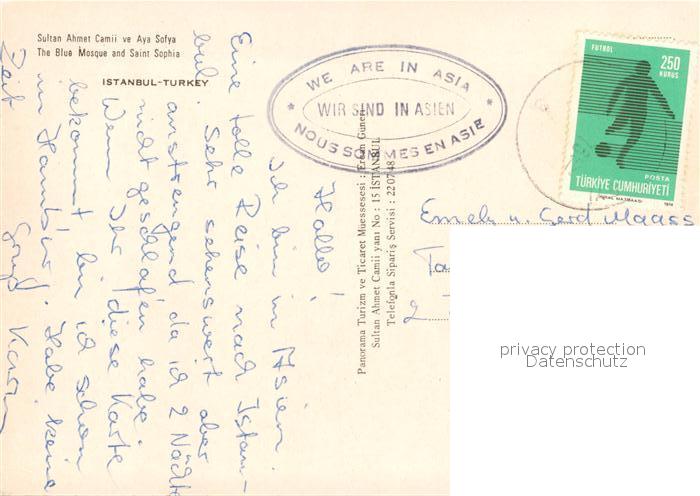 Sultan Ahmet Camii ve Aya Sofya
The Blue Mosque and Saint Sophia
ISTANBUL-TURKEY
WE ARE IN ASIA
WIR SIND IN ASIEN
NOUS SOMMES EN ASIE
FUTBOL
250
KURUŞ
POSTA
TÜRKİYE CUMHURİYETİ
Hallo!
Ich bin in Asien.
Eine tolle Reise nach Istan-
bul. Sehr sehenswert aber
anstrengend da ich 2 Nächte
nicht geschlafen habe.
Wenn Ihr diese Karte
bekommt bin ich schon
in Hamburg. Habe keine
Zeit
Gruß Karin
Panorama Turizm ve Ticaret Müessesesi : Ercan Güneri
Sultan Ahmet Camii yanı No : 15 İSTANBUL
Telefonla Sipariş Servisi : 22 07 48
Emely u. Gerd Maass
privacy protection
Datenschutz